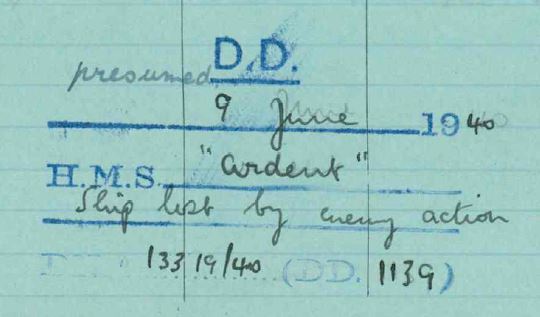 presumed D.D.
9 June 1940
H.M.S. "Ardent"
Ship lost by enemy action
13319/40 (DD. 1139)